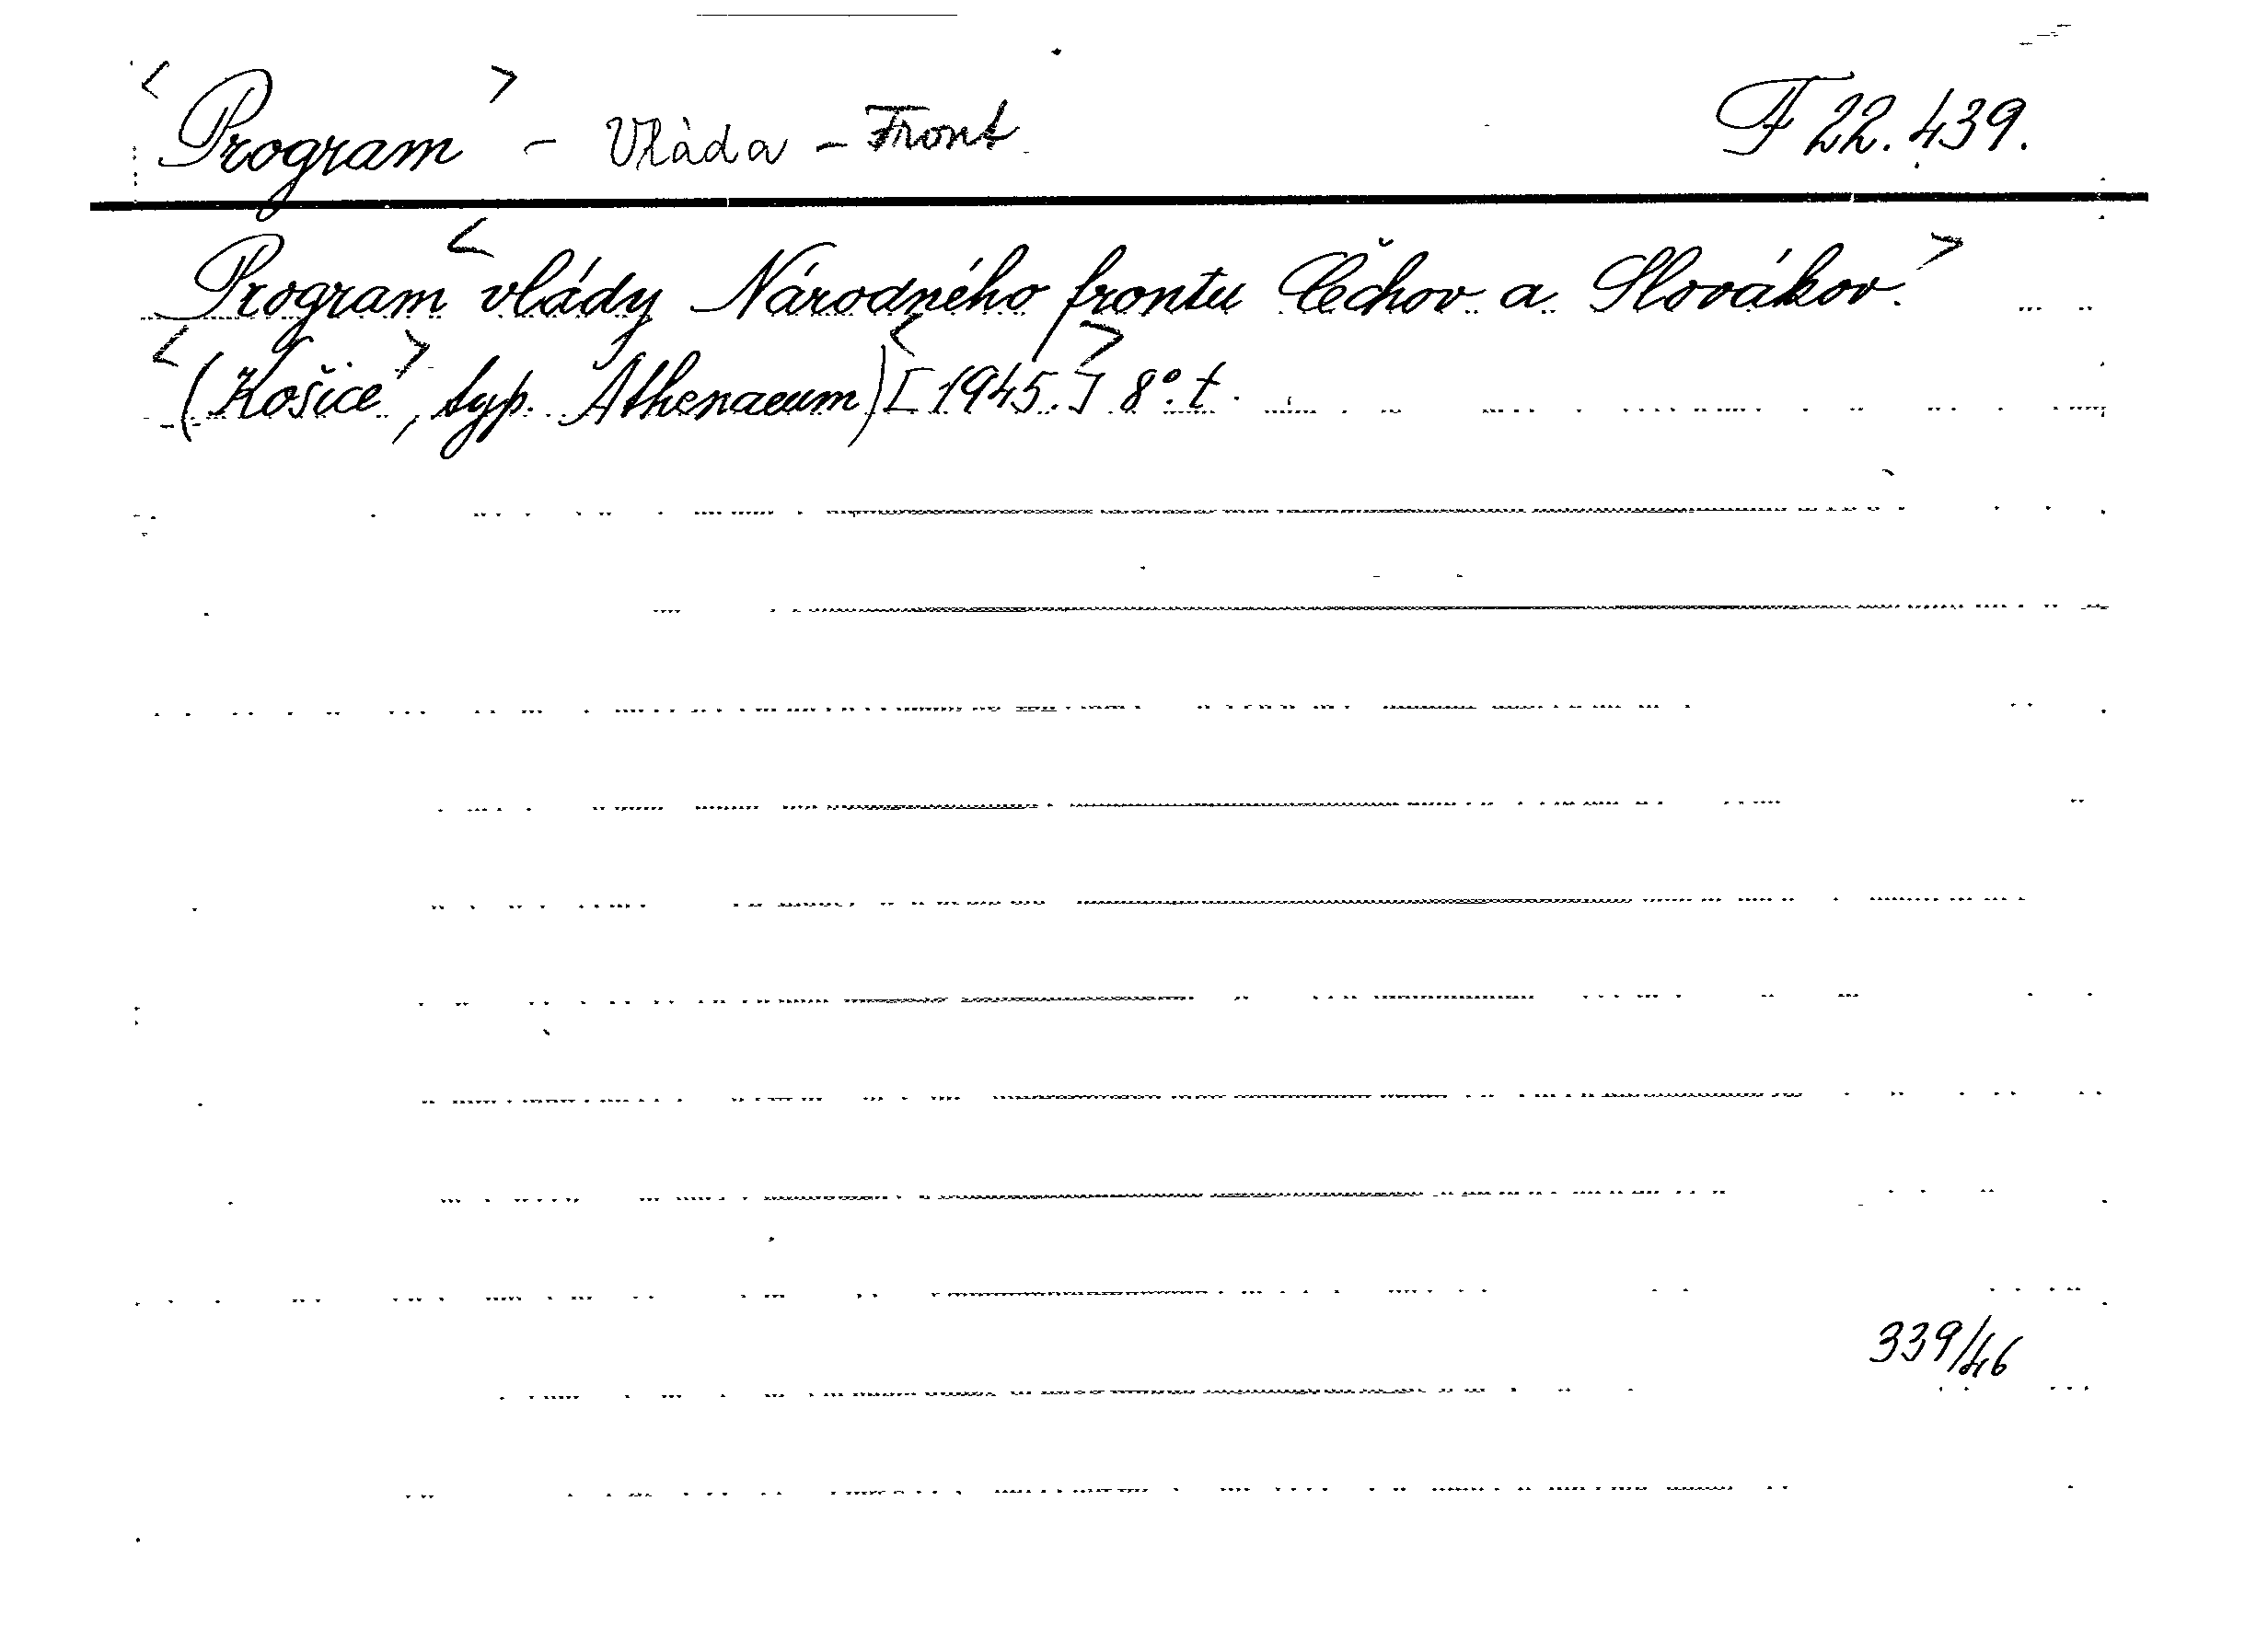 <Program> - Vláda - Front F 22.439.
Program <vlády Národného frontu Čechov a Slovákov.>
<(Košice>, typ. Athenaeum) <[1945.]> 8°. t.
339/46